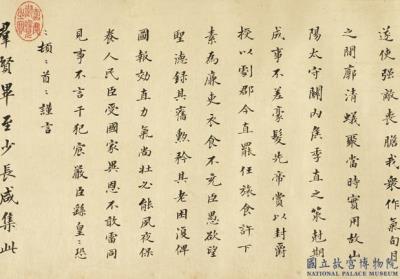 遂使強敵喪膽我衆作氣旬月
之間廓清蟻聚當時實用故山
陽太守關內矦季直之策尅期
成事不差豪髮先帝賞以封爵
授以劇郡今直罷任旅食許下
素為廉吏衣食不充臣愚欲望
聖德錄其舊勳矜其老困復俾
圖報効直力氣尚壯必能夙夜保
養人民臣受國家異恩不敢雷同
見事不言干犯宸嚴臣繇皇〻恐
〻頓〻首〻謹言
羣賢畢至少長咸集此
國立故宮博物院